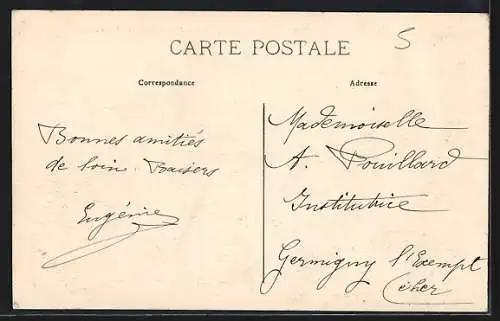 CARTE POSTALE
5
Correspondance
Adresse
Bonnes amitiés
de loin. Baisers
Eugénie
Mademoiselle
A. Pouillard
Institutrice
Germigny l'Exempt
Cher